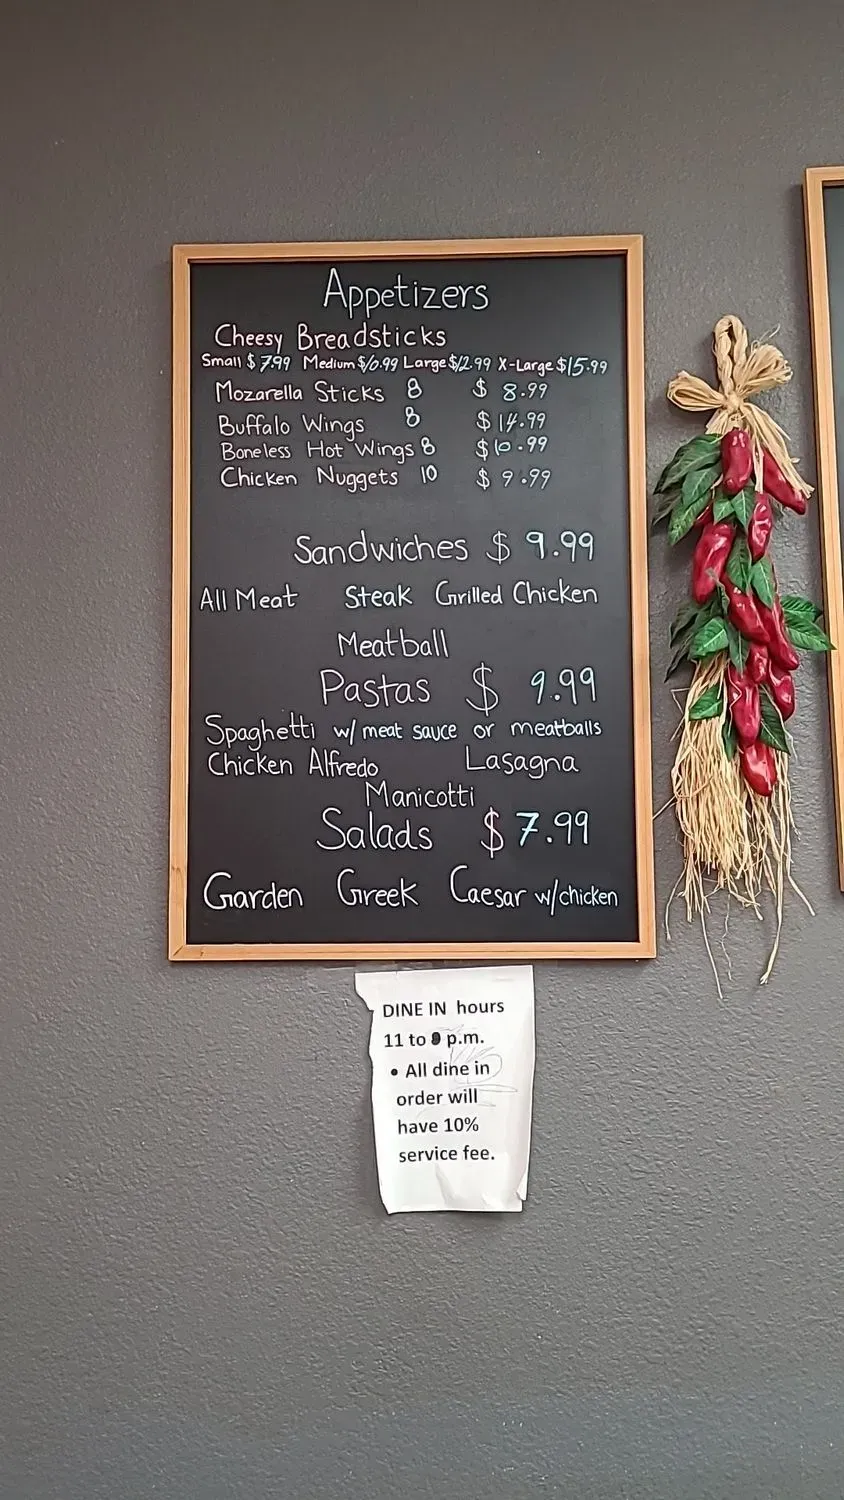 Appetizers
Cheesy Breadsticks
Small $7.99 Medium $10.99 Large $12.99 X-Large $15.99
Mozarella Sticks 8 $ 8.99
Buffalo Wings 8 $14.99
Boneless Hot Wings 8 $10.99
Chicken Nuggets 10 $ 9.99
Sandwiches $ 9.99
All Meat Steak Grilled Chicken
Meatball
Pastas $ 9.99
Spaghetti w/ meat sauce or meatballs
Chicken Alfredo Lasagna
Manicotti
Salads $7.99
Garden Greek Caesar w/chicken
DINE IN hours
11 to p.m.
• All dine in
order will
have 10%
service fee.